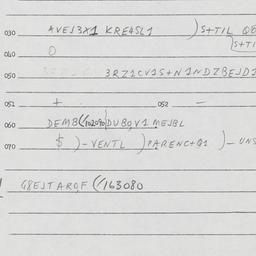 030 AVEJ3X1 KRE4SL1 )S+TIL Q8
)S+TI
040 O
050 3RZ1CV1S+N1NDZBEJDZ
051 + 052 —
060 DEMB(/102090)DUBQV1 MEJBL
070 $ )-VENTL )PARENC+Q1 )-UNS
G8EJTARQF (/163080